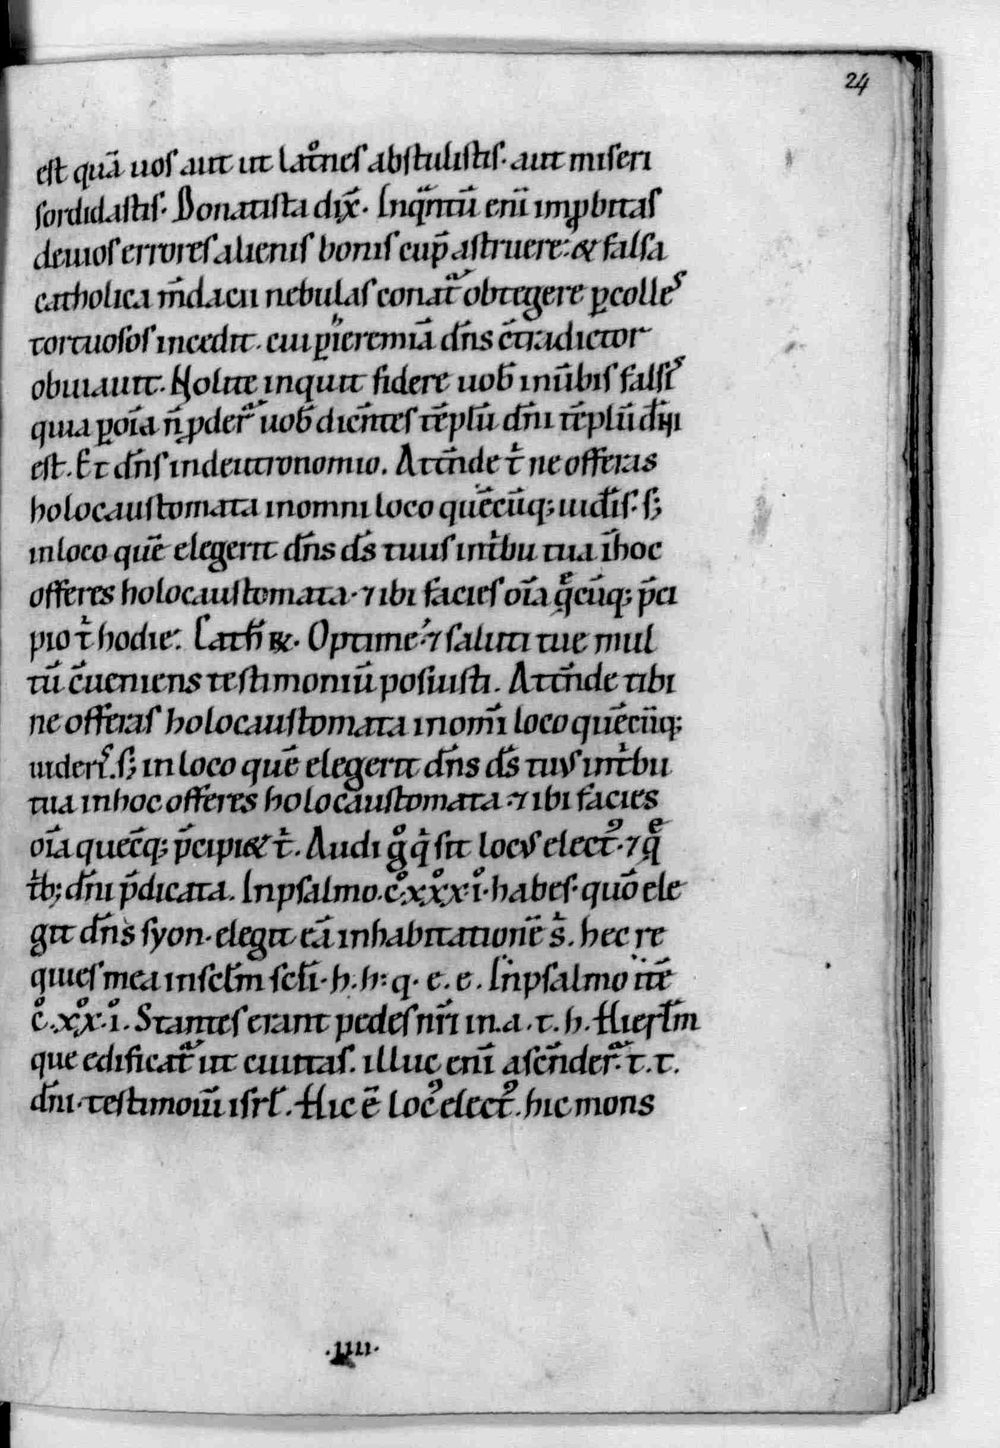 24
est quā uos aut ut latͦnes abstulistis· aut miseri
sordidastis· Donatista dix̄· Inqͣntū eni͂ imꝓbitas
de uos errores alienis bonis cup̄ astruere: & falsa
catholica m̄dacii nebulas conatᷓ obtegere ꝑ colles
tortuosos incedit. cui ꝑ ieremiā dn̄s c̄tradictor
obuiauit. Nolite inquit fidere uob̄ in ūbis falsis
quia ꝑ oīa n̄ ꝓderᷓ uob̄ dicn̄tes tēplū dn̄i tēplū dn̄i
est. Et dn̄s in deutronomio. Attn̄de tͥ ne offeras
holocaustomata in omni loco quēcūq; uid̄is· s;
in loco quē elegerit dn̄s ds̄ tuus in tͥbu tua ī hoc
offeres holocaustomata· ⁊ ibi facies oīa qͤcūq; p̄ci
pio tͥ hodie. Cath̄ &. Optime ⁊ saluti tue mul
tū c̄ueniens testimoniū posiusti. Attn̄de tibi
ne offeras holocaustomata in om̄i loco quēcūq;
uiderꝭ. s; in loco quē elegerit dn̄s ds̄ tuus in tͥbu
tua in hoc offeres holocaustomata ⁊ ibi facies
oīa quec̄q; p̄cipi& tͥ. Audi gͦ qͥ sit locus electꝰ· ⁊ qͤ
tͥb; dn̄i p̄dicata. In psalmo .cͦ.xͦxͦx·iͦ· habes· quō ele
git dn̄s syon· elegit eā in habitationē sͥ. hec re
quies mea in scl̄m scl̄i· h. h: q. e. e. In psalmo itē
cͦ.xͦxͦ.iͦ. Stantes erant pedes nr̄i in. a. t. h. Hierl̄m
que edificatᷓ ut ciuitas. illuc eni͂ ascn̄derᷓ. t. t.
dn̄i· testimoiū isrl̄. Hic ē locꝰ electꝰ. hic mons
.IIII.